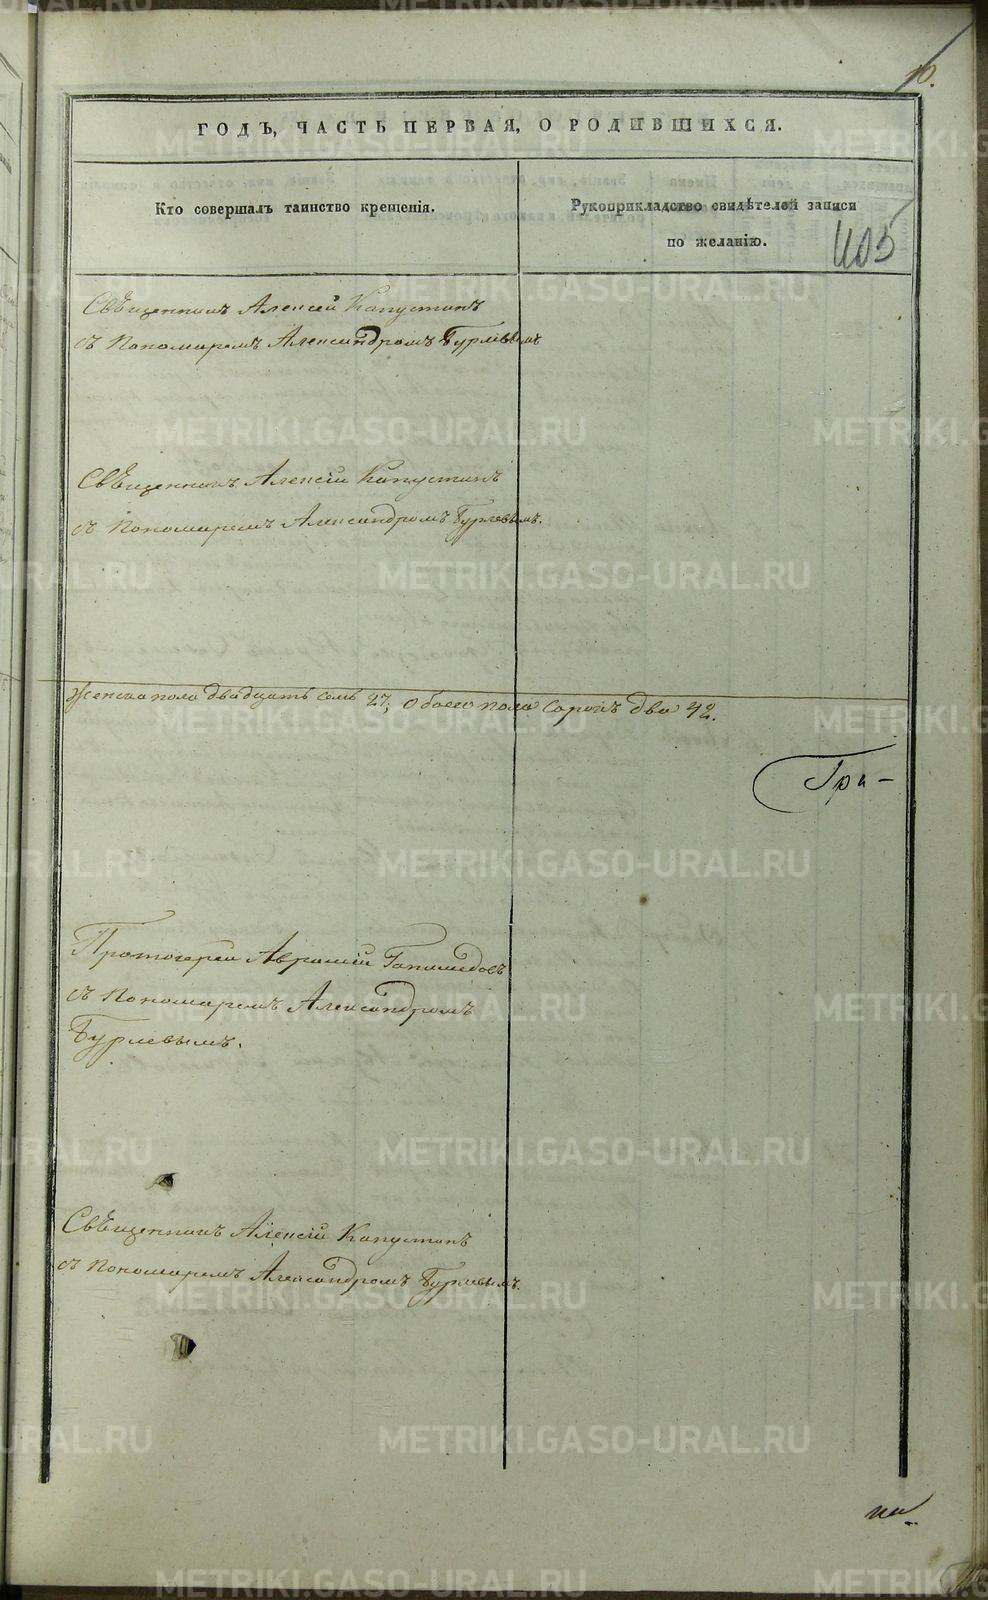 10.
ГОДЪ, ЧАСТЬ ПЕРВАЯ, О РОДИВШИХСЯ.
Кто совершалъ таинство крещенія.
Рукоприкладство свидѣтелей записи
по желанію.
405
Свѣщенникъ Алексій Капустинъ
съ Пономаремъ Александромъ Бурлевымъ
Свѣщенникъ Алексій Капустинъ
съ Пономаремъ Александромъ Бурлевымъ.
Женска пола двадцать семь 27; обоего пола сорокъ два 42.
Гри-
Протоіереи Аврамій
съ Пономаремъ Александромъ
Бурлевымъ.
Свѣщенникъ Алексій Капустинъ
съ Пономаремъ Александромъ Бурлевымъ.
METRIKI.GASO-URAL.RU